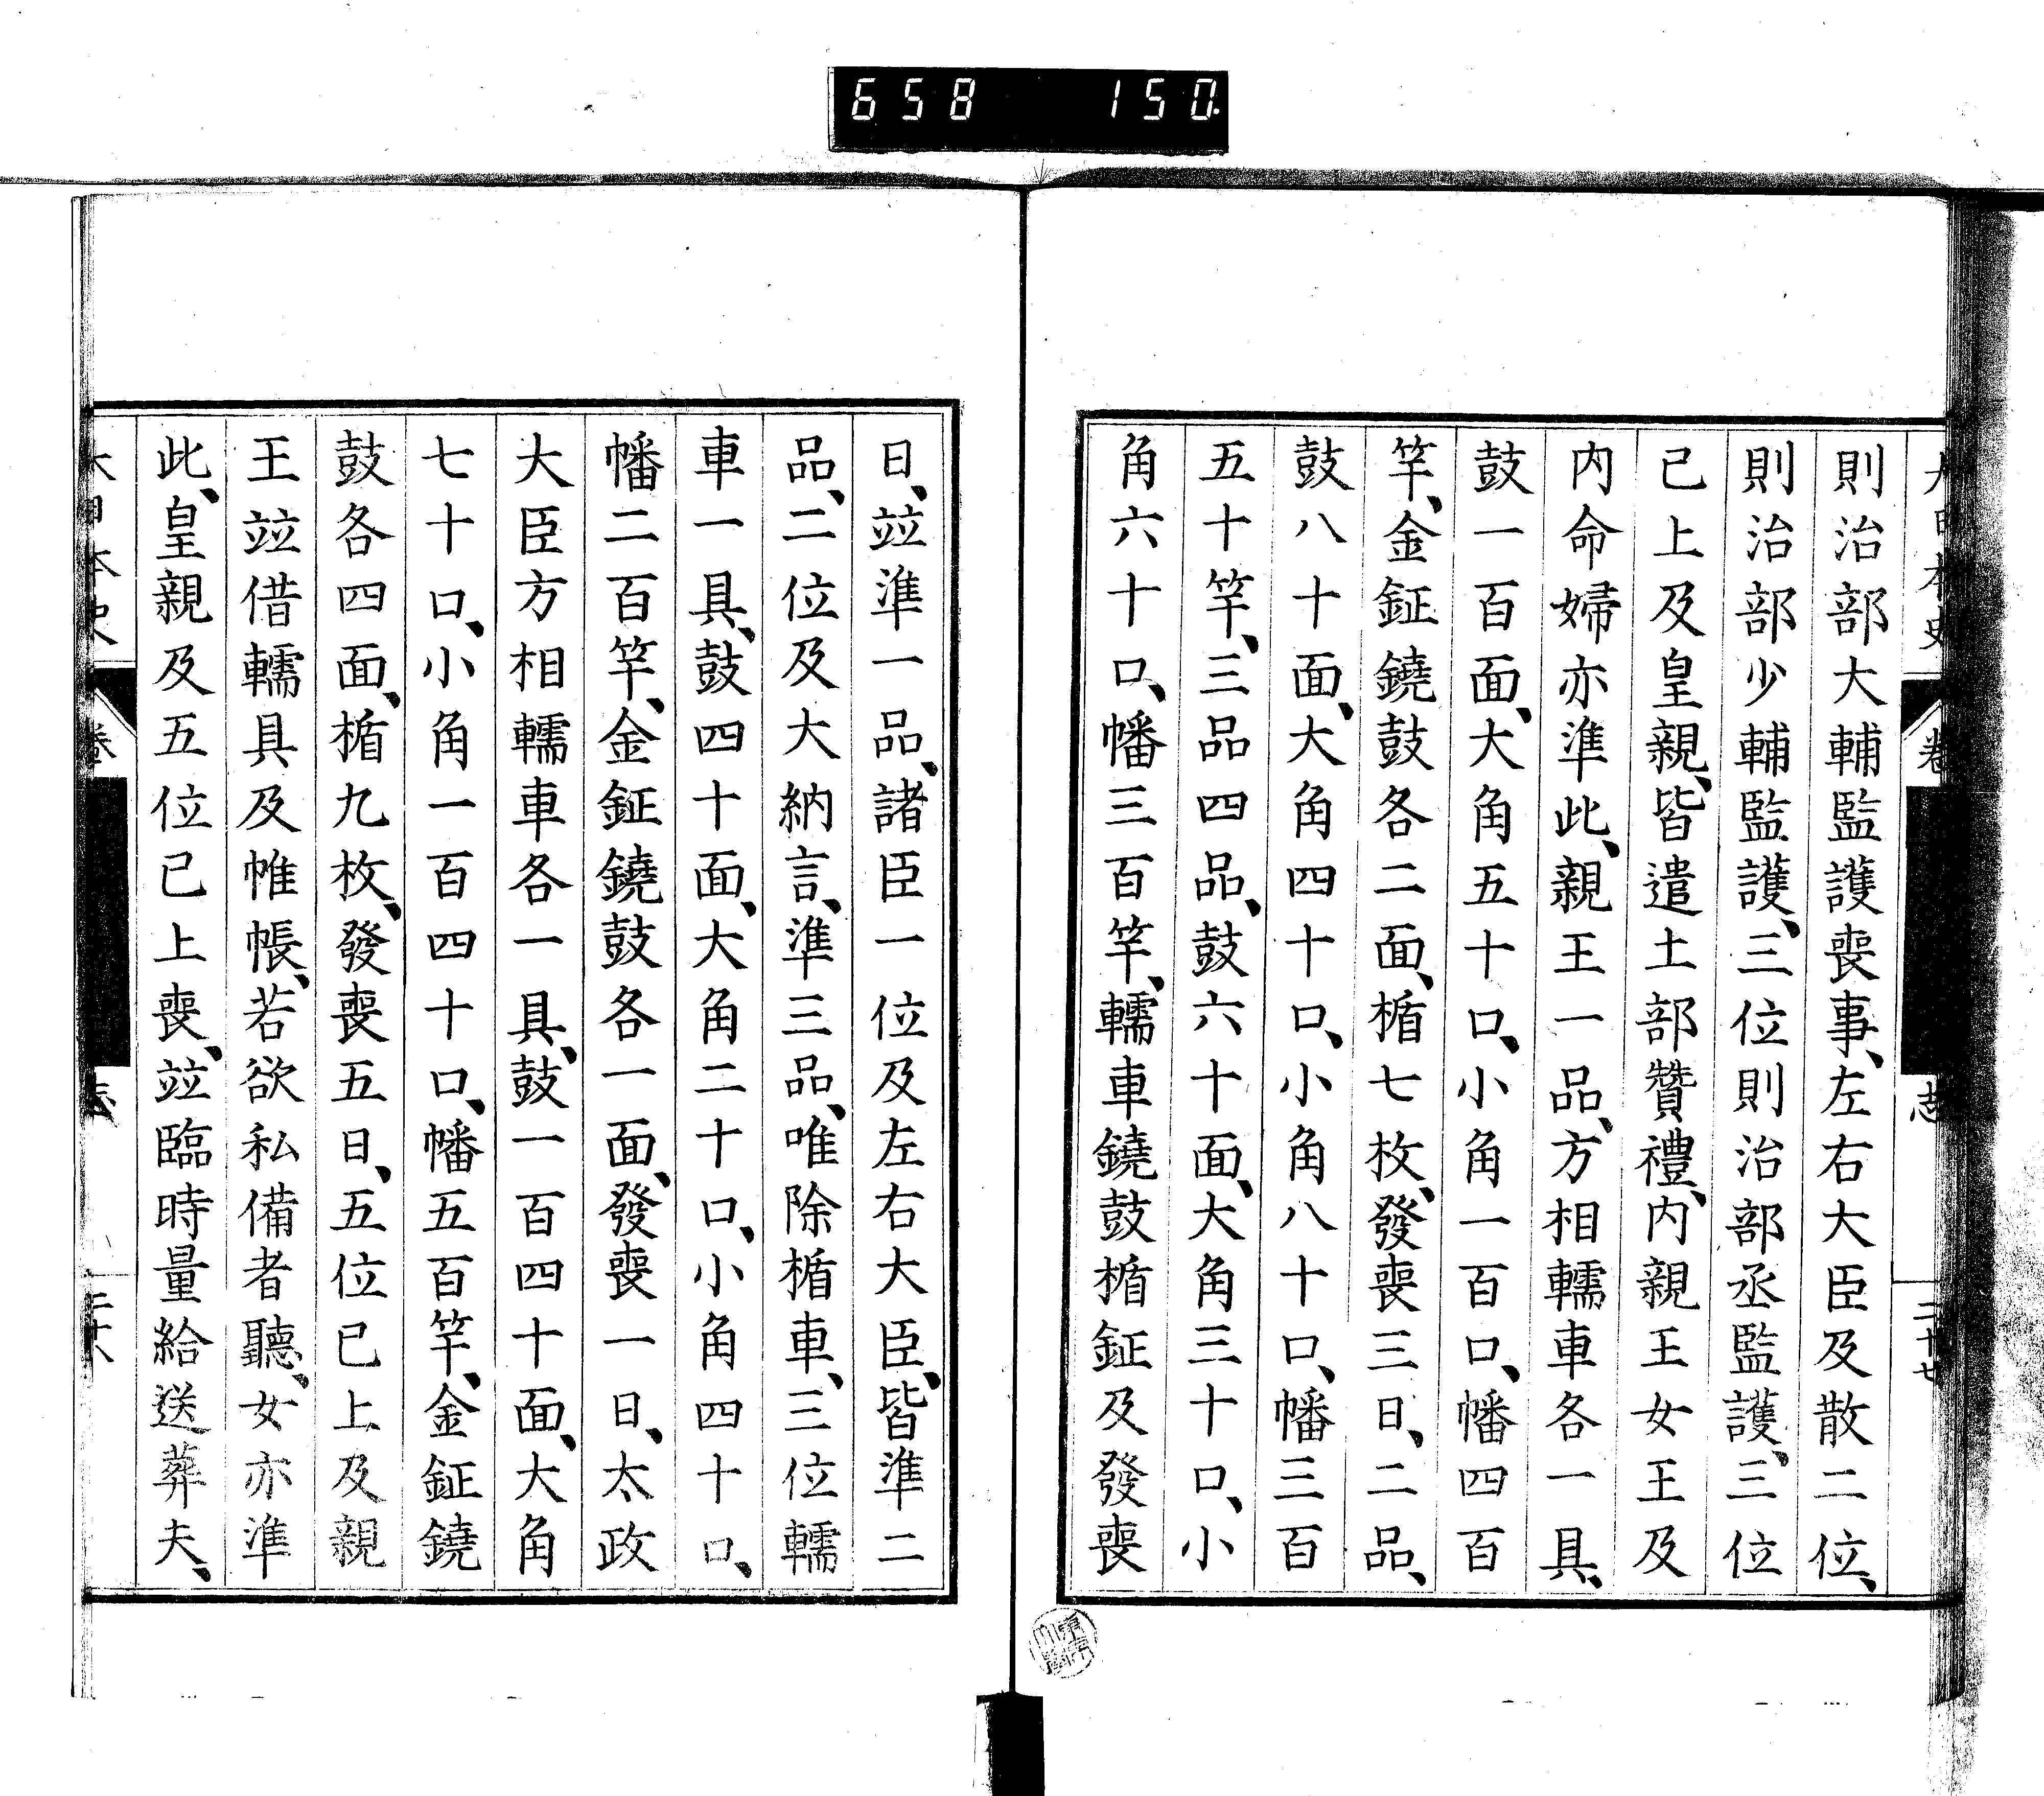 658 150
大日本史 卷 志 二十七
則治部大輔監護喪事、左右大臣及散二位、
則治部少輔監護、三位則治部丞監護、三位
已上及皇親、皆遣土部贊禮、内親王女王及
内命婦亦準此、親王一品、方相轜車各一具、
鼓一百面、大角五十口、小角一百口、幡四百
竿、金鉦鐃鼓各二面、楯七枚、發喪三日、二品、
鼓八十面、大角四十口、小角八十口、幡三百
五十竿、三品四品、鼓六十面、大角三十口、小
角六十口、幡三百竿、轜車鐃鼓楯鉦及發喪
日、竝準一品、諸臣一位及左右大臣、皆準二
品、二位及大納言、準三品、唯除楯車、三位轜
車一具、鼓四十面、大角二十口、小角四十口、
幡二百竿、金鉦鐃鼓各一面、發喪一日、太政
大臣方相轜車各一具、鼓一百四十面、大角
七十口、小角一百四十口、幡五百竿、金鉦鐃
鼓各四面、楯九枚、發喪五日、五位已上及親
王竝借轜具及帷帳、若欲私備者聽、女亦準
此、皇親及五位已上喪、竝臨時量給送葬夫、
大日本史 卷 志 二十八